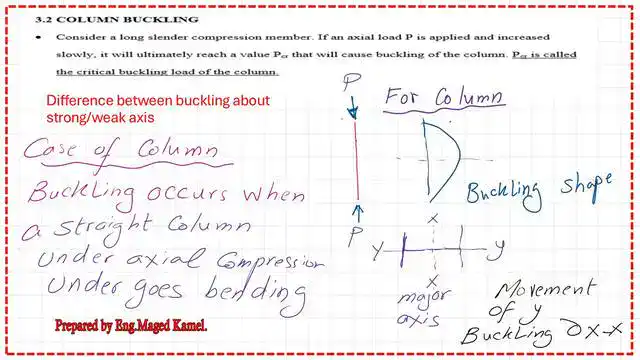 3.2 COLUMN BUCKLING
• Consider a long slender compression member. If an axial load P is applied and increased
slowly, it will ultimately reach a value Pcr that will cause buckling of the column. Pcr is called
the critical buckling load of the column.
Difference between buckling about
strong/weak axis
Case of Column
Buckling occurs when
a straight Column
Under axial Compression
Under goes bending
Prepared by Eng.Maged Kamel.
P
P
For Column
Buckling Shape
x
y y
x
major
axis
Movement
of y
Buckling x-x